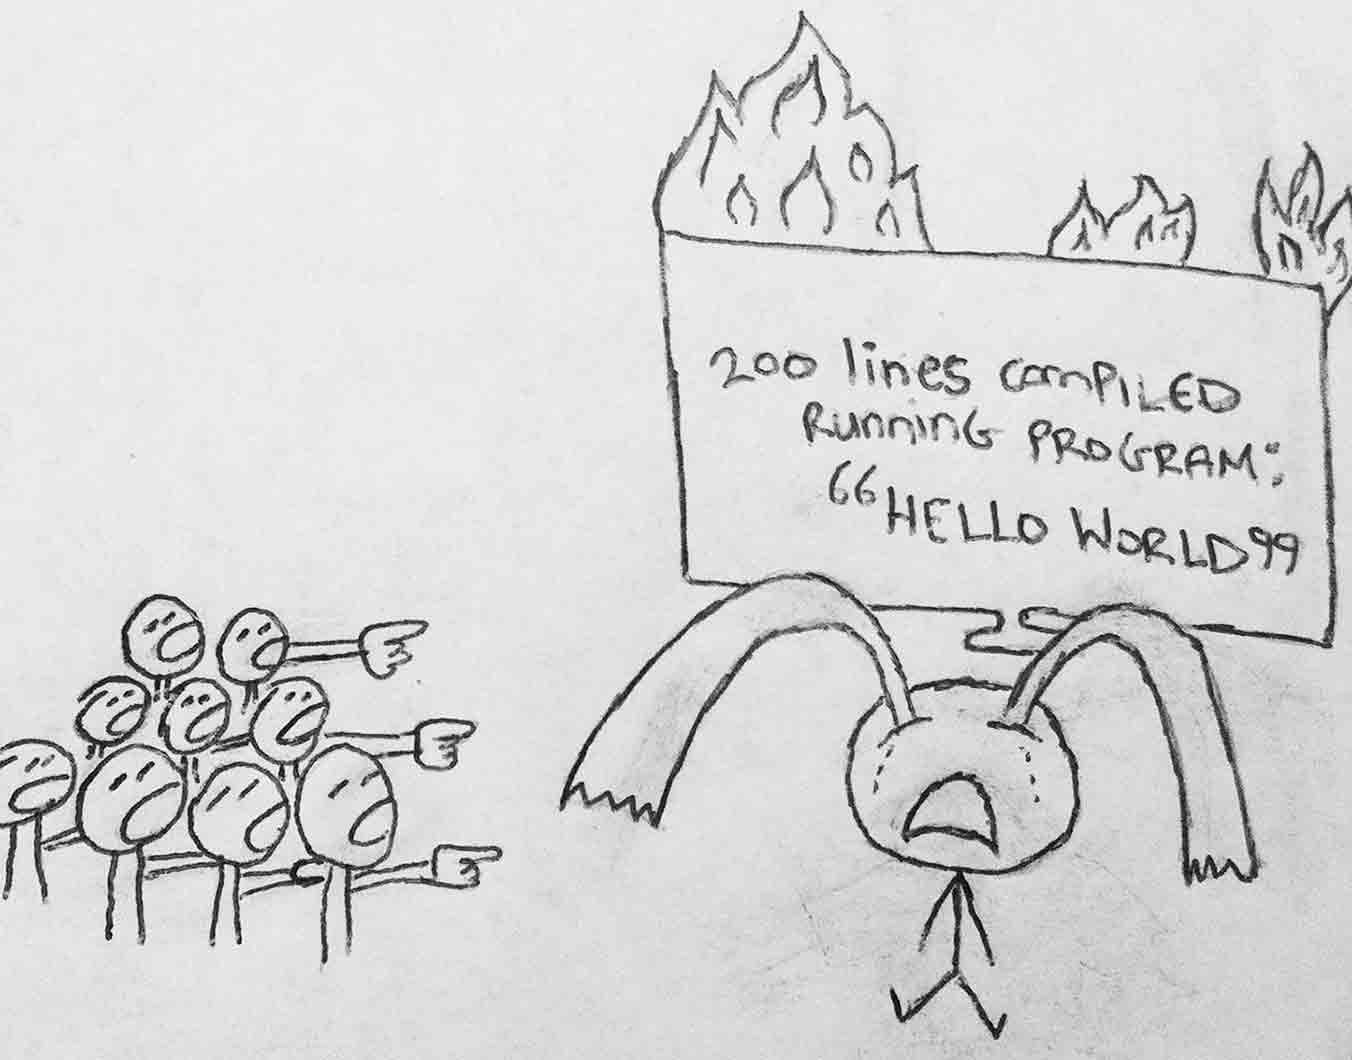 200 lines comPILED
RunninG PROGRAM:
"HELLO WORLD"